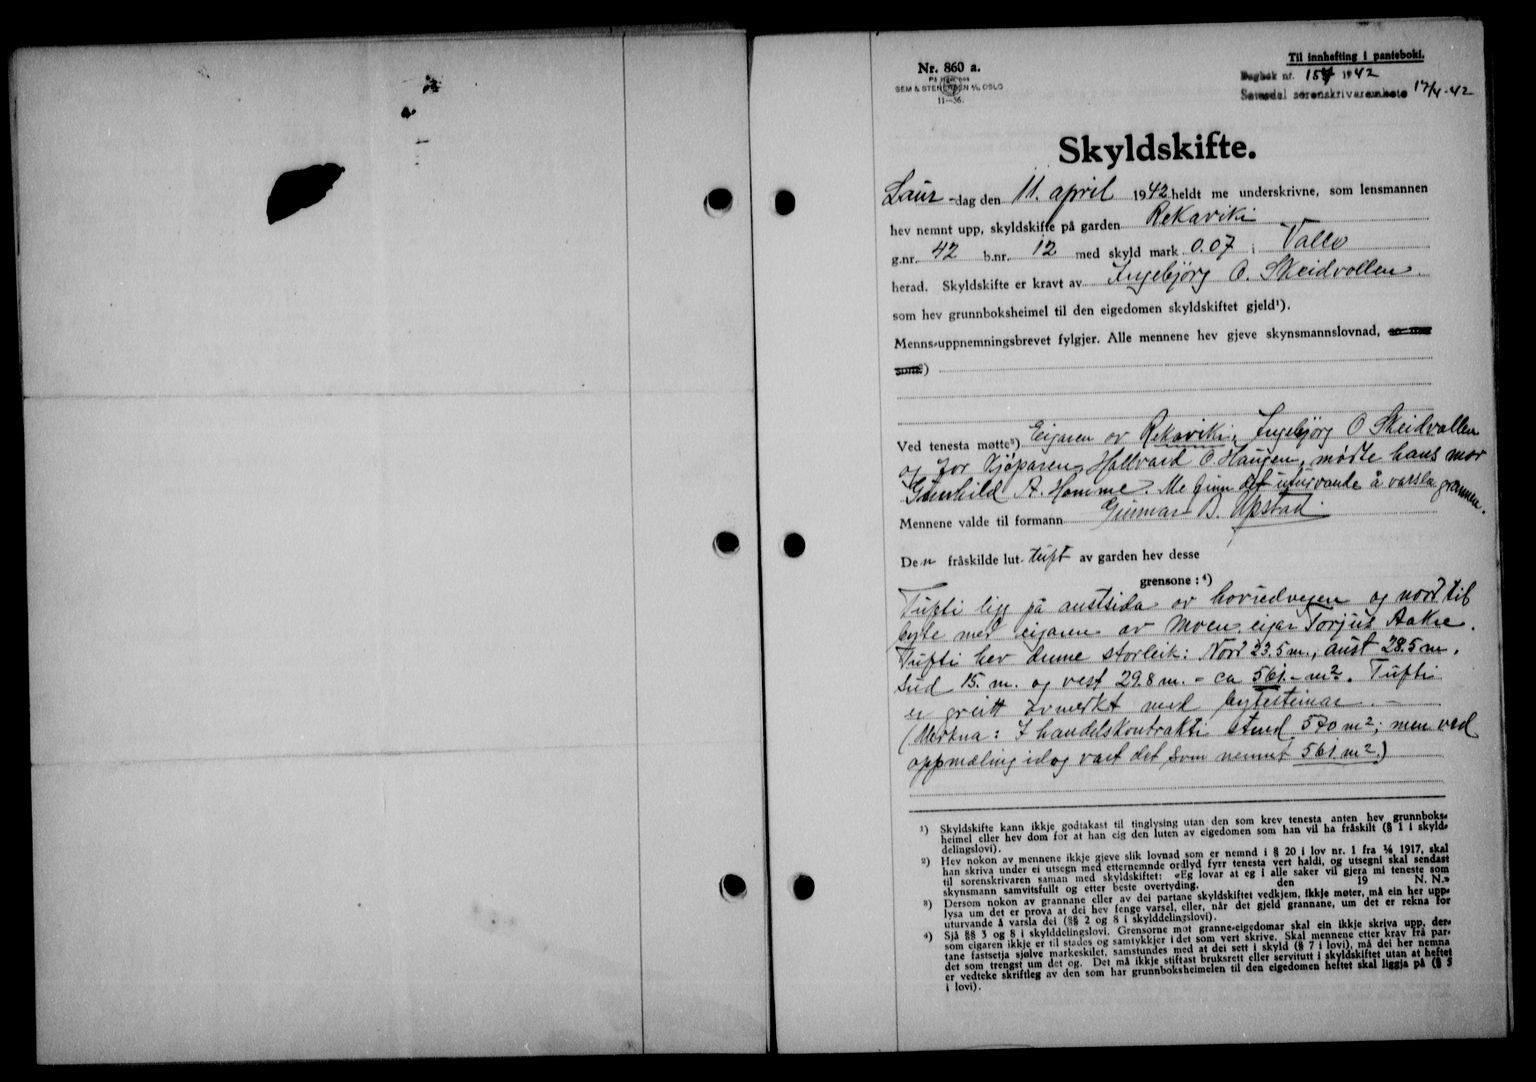 Nr. 860 a.
På lager hos
SEM & STENERSEN A/S, OSLO
11—36.
Til innhefting i panteboki.
Dagbok nr. 157 1942
Setesdal sorenskrivarembete 17/4-42
Skyldskifte.
Laur-dag den 11. april 1942 heldt me underskrivne, som lensmannen
hev nemnt upp, skyldskifte på garden Rekaviki
g.nr. 42 b.nr. 12 med skyld mark 0.07 i Valle
herad. Skyldskifte er kravt av Ingebjörg O. Skeidvollen.
som hev grunnboksheimel til den eigedomen skyldskiftet gjeld¹).
Menns-uppnemningsbrevet fylgjer. Alle mennene hev gjeve skynsmannslovnad,
Ved tenesta møtte³) Eigaren av Rekaviki, Ingebjörg O Skeidvollen
og for kjöparen Hallvard O. Haugen, mödte hans mor
Gunhild A. Homme. Me finn det uturvande å varsla grannen.
Mennene valde til formann Gunnar B. Upstad.
Den fråskilde lut tuft av garden hev desse
grensone:⁴)
Tufti ligg på austsida av hovudvegen og nord til
byte med eigaren av Moen, eigar Torjus Aakre.
Tufti hev denne storleik: Nord 23.5 m., aust 28.5 m.
Sud 15. m. og vest 29.8 m. = ca 561.- m². Tufti
er greitt avmerkt med bytesteinar. -
(Merkna: I handelskontrakti stend 570 m²; men ved
oppmæling idag vart det som nemnt 561. m².)
¹) Skyldskifte kann ikkje godtakast til tinglysing utan den som krev tenesta anten hev grunnboks-
heimel eller hev dom for at han eig den luten av eigedomen som han vil ha fråskilt (§ 1 i skyld-
delingslovi).
²) Hev nokon av mennene ikkje gjeve slik lovnad som er nemnd i § 20 i lov nr. 1 fra 1917, skal
han skriva under ei utsegn med etternemnde ordlyd fyrr tenesta vert haldi, og utsegni skal sendast
til sorenskrivaren saman med skyldskiftet: «Eg lovar at eg i alle saker vil gjera mi teneste som
skynsmann samvitsfullt og etter beste overtyding. den 19 N. N.»
³) Dersom nokon av grannane eller av dei partane skyldskiftet vedkjem, ikkje møter, må ein her upp-
lysa um det er prova at dei hev fenge varsel, eller, når det gjeld grannane, um det er rekna for
uturvande å varsla dei (§§ 2 og 8 i skylddelingslovi).
⁴) Sjå §§ 3 og 8 i skylddelingslovi. Grensorne mot granne-eigedomar skal ein ikkje skriva upp, der-
som eigaren ikkje er til stades og samtykkjer i det som vert skrive. Skal mennene etter krav frå par-
tane fastsetja sjølve markeskilet, samstundes med at dei sett i skyld (§ 7 i lovi), må dei her nemna
det som trengst um det og. Det må ikkje stiftast bruksrett eller servitutt i skyldskiftet utan at heftet
er vedteke skriftleg av den som har grunnboksheimelen til den eigedomen heftet skal liggja på (§ 5
i lovi).